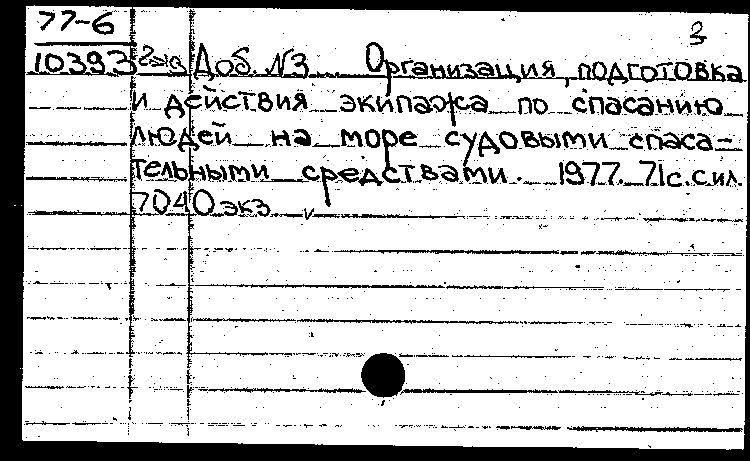 77-6
3
10393 2экз Доб. №3... Организация, подготовка
и действия экипажа по спасанию
людей на море судовыми спаса-
тельными средствами. 1977. 71с. с ил.
7040 экз v